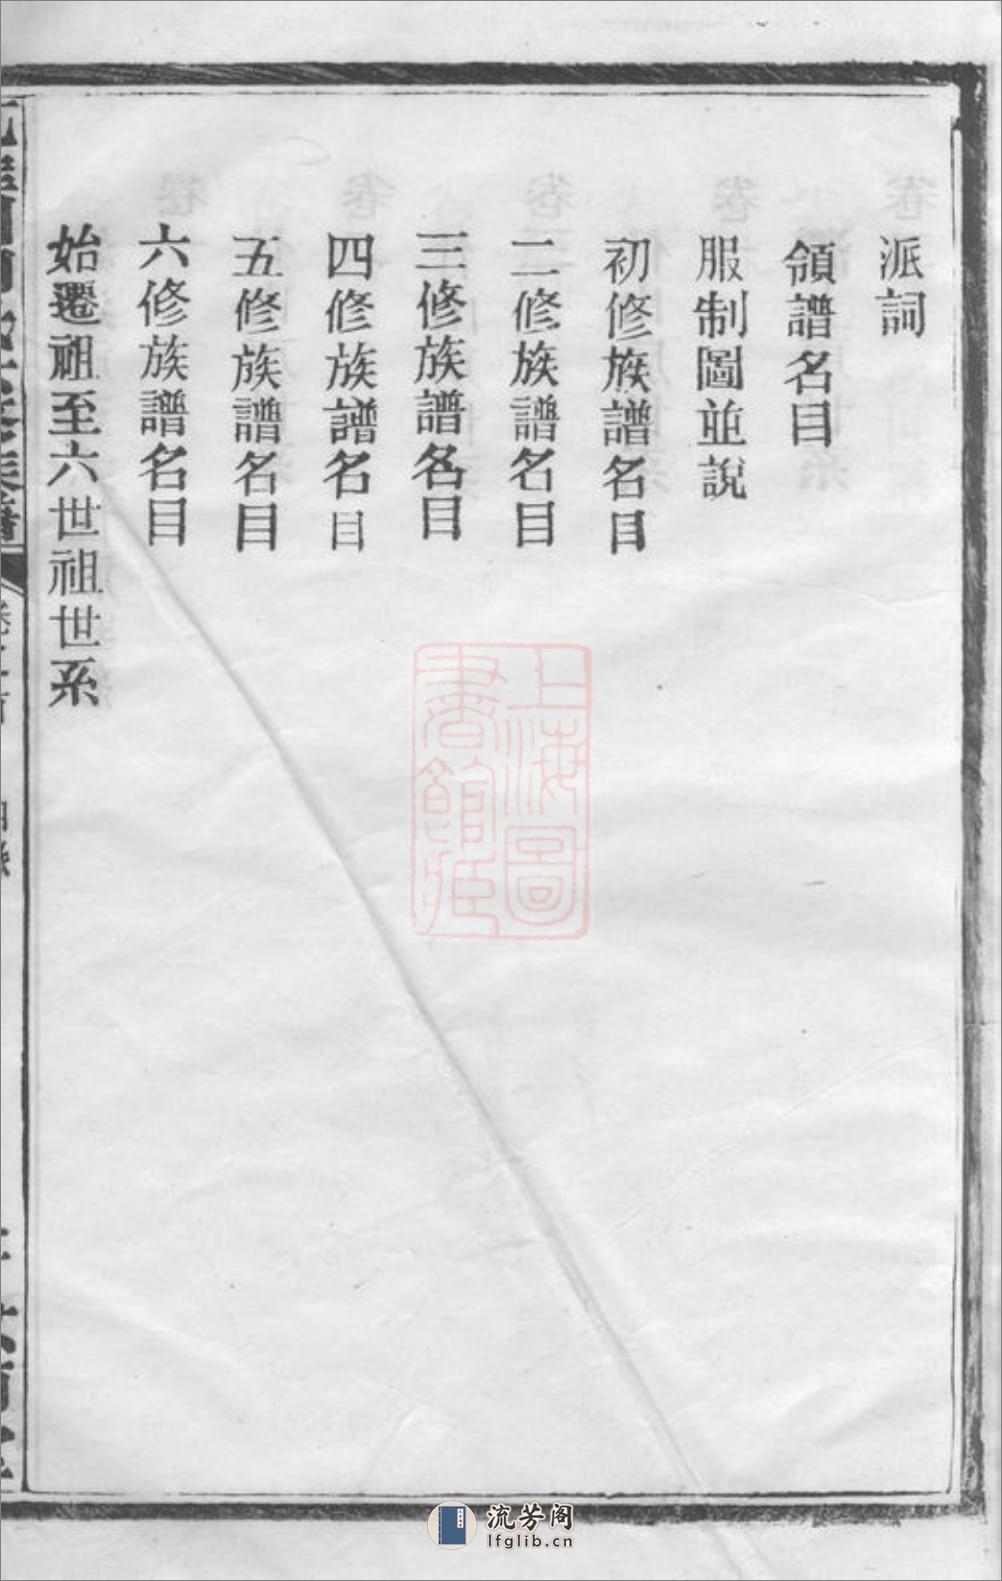 派詞
領譜名目
服制圖並說
初修族譜名目
二修族譜名目
三修族譜名目
四修族譜名目
五修族譜名目
六修族譜名目
始遷祖至六世祖世系
上海圖
書館藏
流芳阁
lfglib.cn